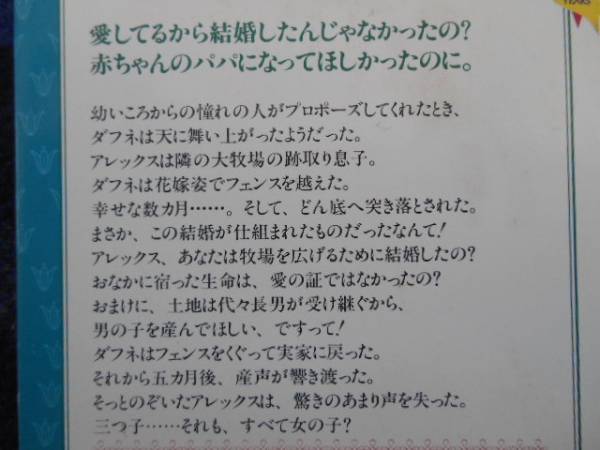 YEARS
愛してるから結婚したんじゃなかったの?
赤ちゃんのパパになってほしかったのに。
幼いころからの憧れの人がプロポーズしてくれたとき、
ダフネは天に舞い上がったようだった。
アレックスは隣の大牧場の跡取り息子。
ダフネは花嫁姿でフェンスを越えた。
幸せな数カ月……。そして、どん底へ突き落とされた。
まさか、この結婚が仕組まれたものだったなんて!
アレックス、あなたは牧場を広げるために結婚したの?
おなかに宿った生命は、愛の証ではなかったの?
おまけに、土地は代々長男が受け継ぐから、
男の子を産んでほしい、ですって!
ダフネはフェンスをくぐって実家に戻った。
それから五カ月後、産声が響き渡った。
そっとのぞいたアレックスは、驚きのあまり声を失った。
三つ子……それも、すべて女の子?